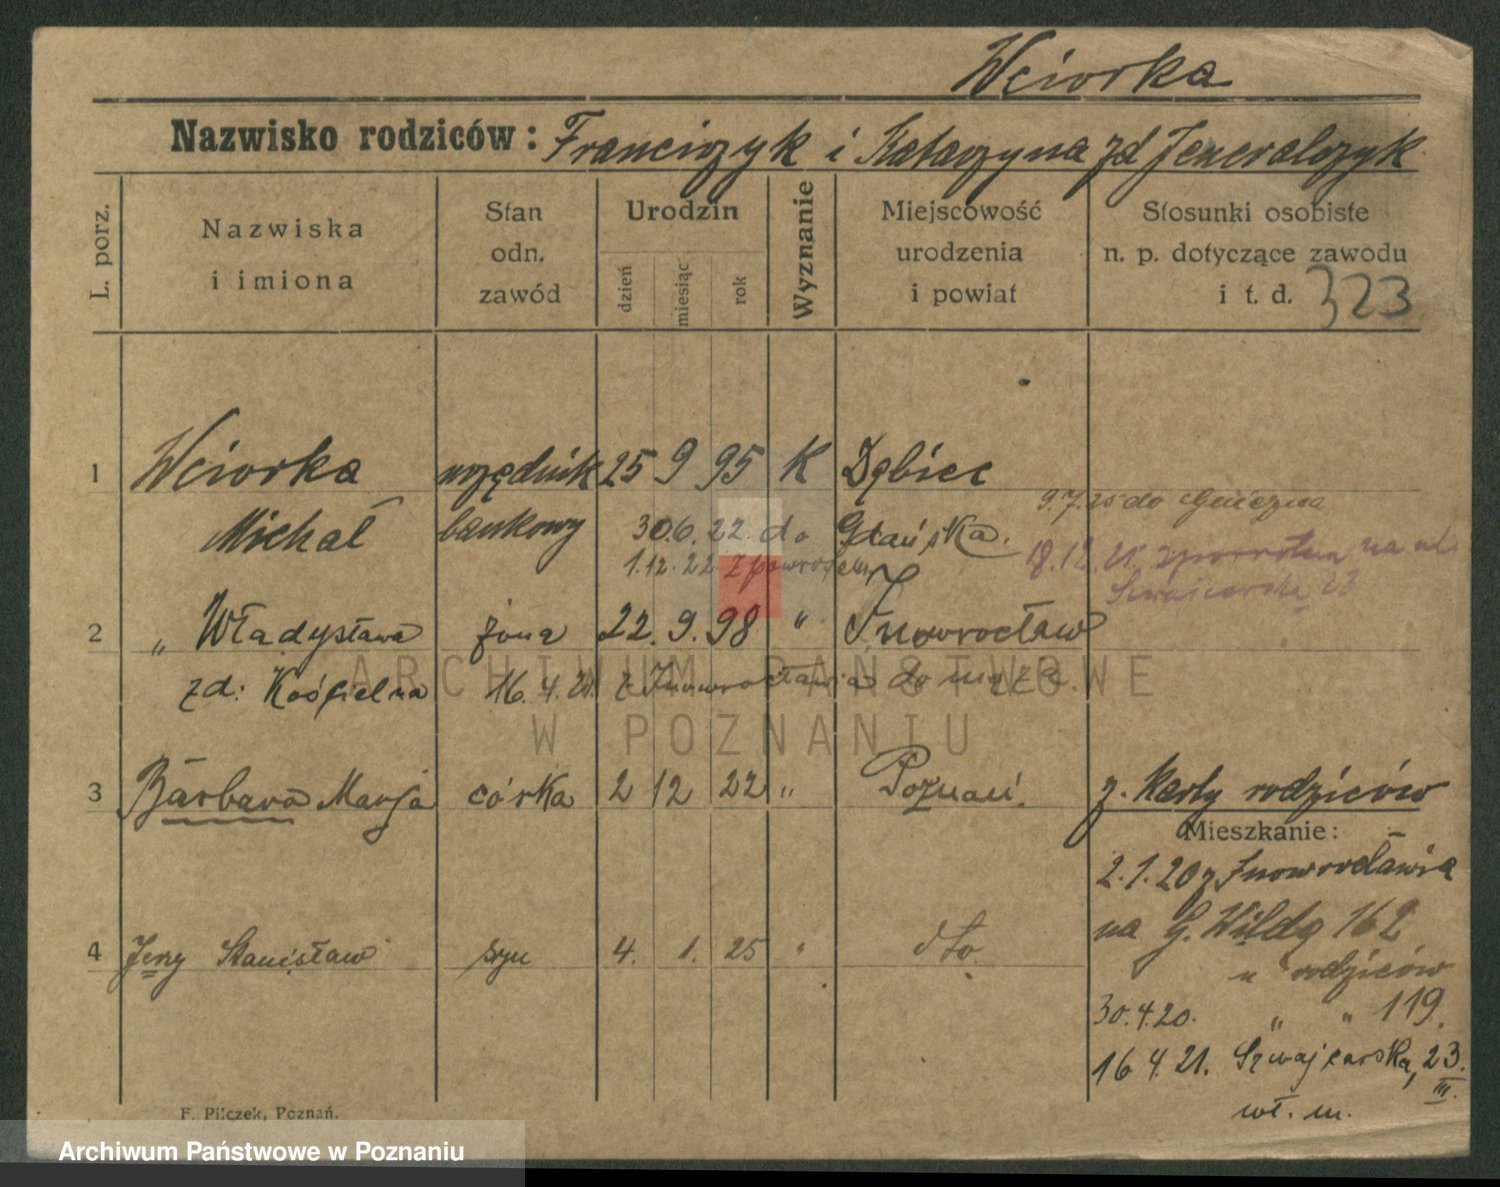 Wciorka
Nazwisko rodziców: Franciszyk i Katarzyna zd Jeneralczyk
L. porz.
Nazwiska i imiona
Stan odn. zawód
Urodzin
dzień miesiąc rok
Wyznanie
Miejscowość urodzenia i powiat
Stosunki osobiste n. p. dotyczące zawodu i t. d. 323
1 Wciorka urzędnik 25 9 95 K Dębiec
9.7.25 do Gniezna
Michał bankowy 30.6.22. do Gdańska.
18.12.25. zpowrotem na ul.
1.12.22. z powrotem
Szwajcarska 23
2 " Władysława żona 22. 9. 98 " Inowrocław
zd: Kościelna 16.4.21. z Inowrocławia do męża.
ARCHIWUM PAŃSTWOWE
W POZNANIU
3 Barbara Marja córka 2 12 22 " Poznań. z. karty rodziców
Mieszkanie:
2.1.20 z Inowrocławia
na G. Wildą 162
u rodziców
4 Jerzy Stanisław syn 4. 1. 25 " dto.
30.4.20. " " 119.
16.4.21. Szwajcarska, 23.
III.
wł. m.
F. Pilczek, Poznań.
Archiwum Państwowe w Poznaniu